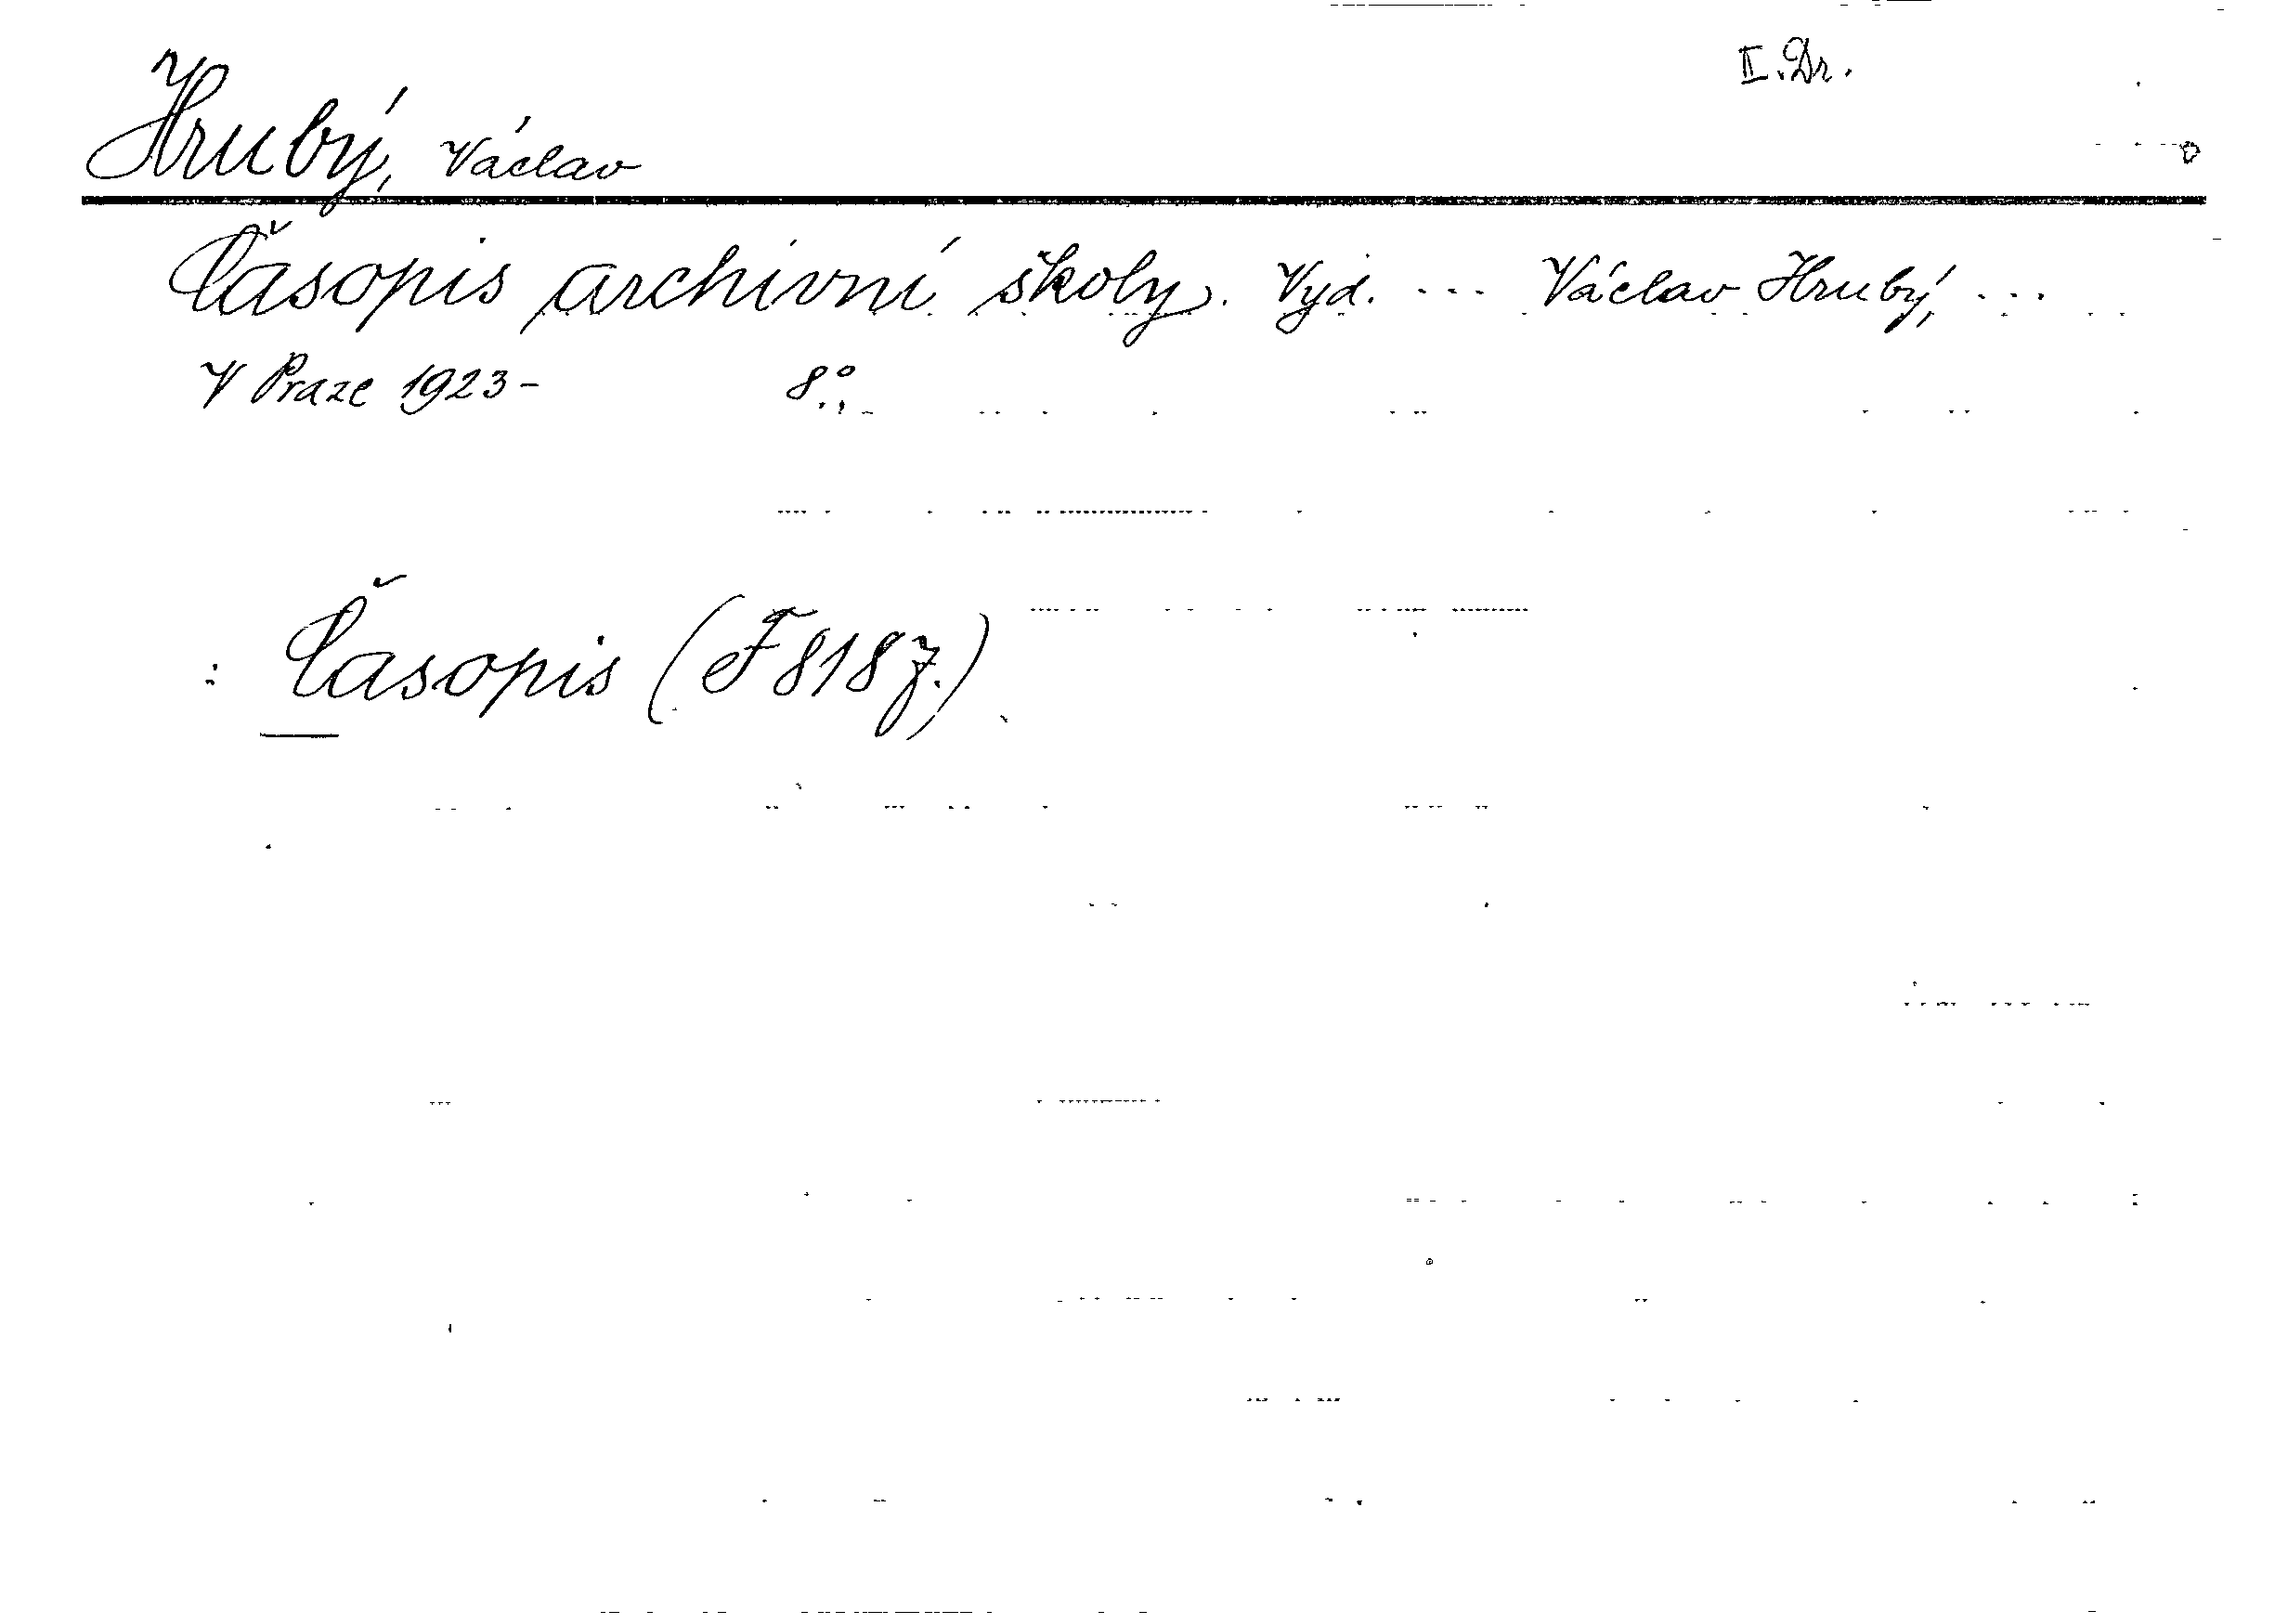 II. Dr.
Hrubý, Václav
Časopis archivní školy. Vyd. ... Václav Hrubý, ...
V Praze 1923- 8°.
: Časopis (F 8187.)